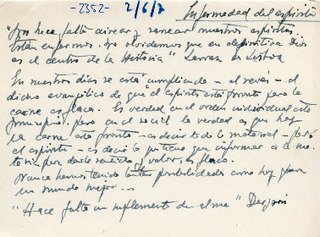 -2352- 2/6/7
Enfermedad del espíritu
Nos hace falta airear y sanear nuestros espíritus
Están enfermos. No olvidemos que en definitiva Dios
es el centro de la Historia" Larraz en Lisboa
En nuestros días se está cumpliendo - al revés - el
dicho evangélico de que "el espíritu está pronto pero la
carne es flaca. Es verdad en el orden individual este
principio. pero en el social la verdad es que hoy
la carne está pronta - es decir todo lo material - pero
el espíritu - es decir lo que tiene que informar a la ma-
teria para darle sentido y valor, es flaco.
Nunca hemos tenido tantas posibilidades como hoy para
un mundo mejor...
"Hace falta un suplemento de alma" Bergson